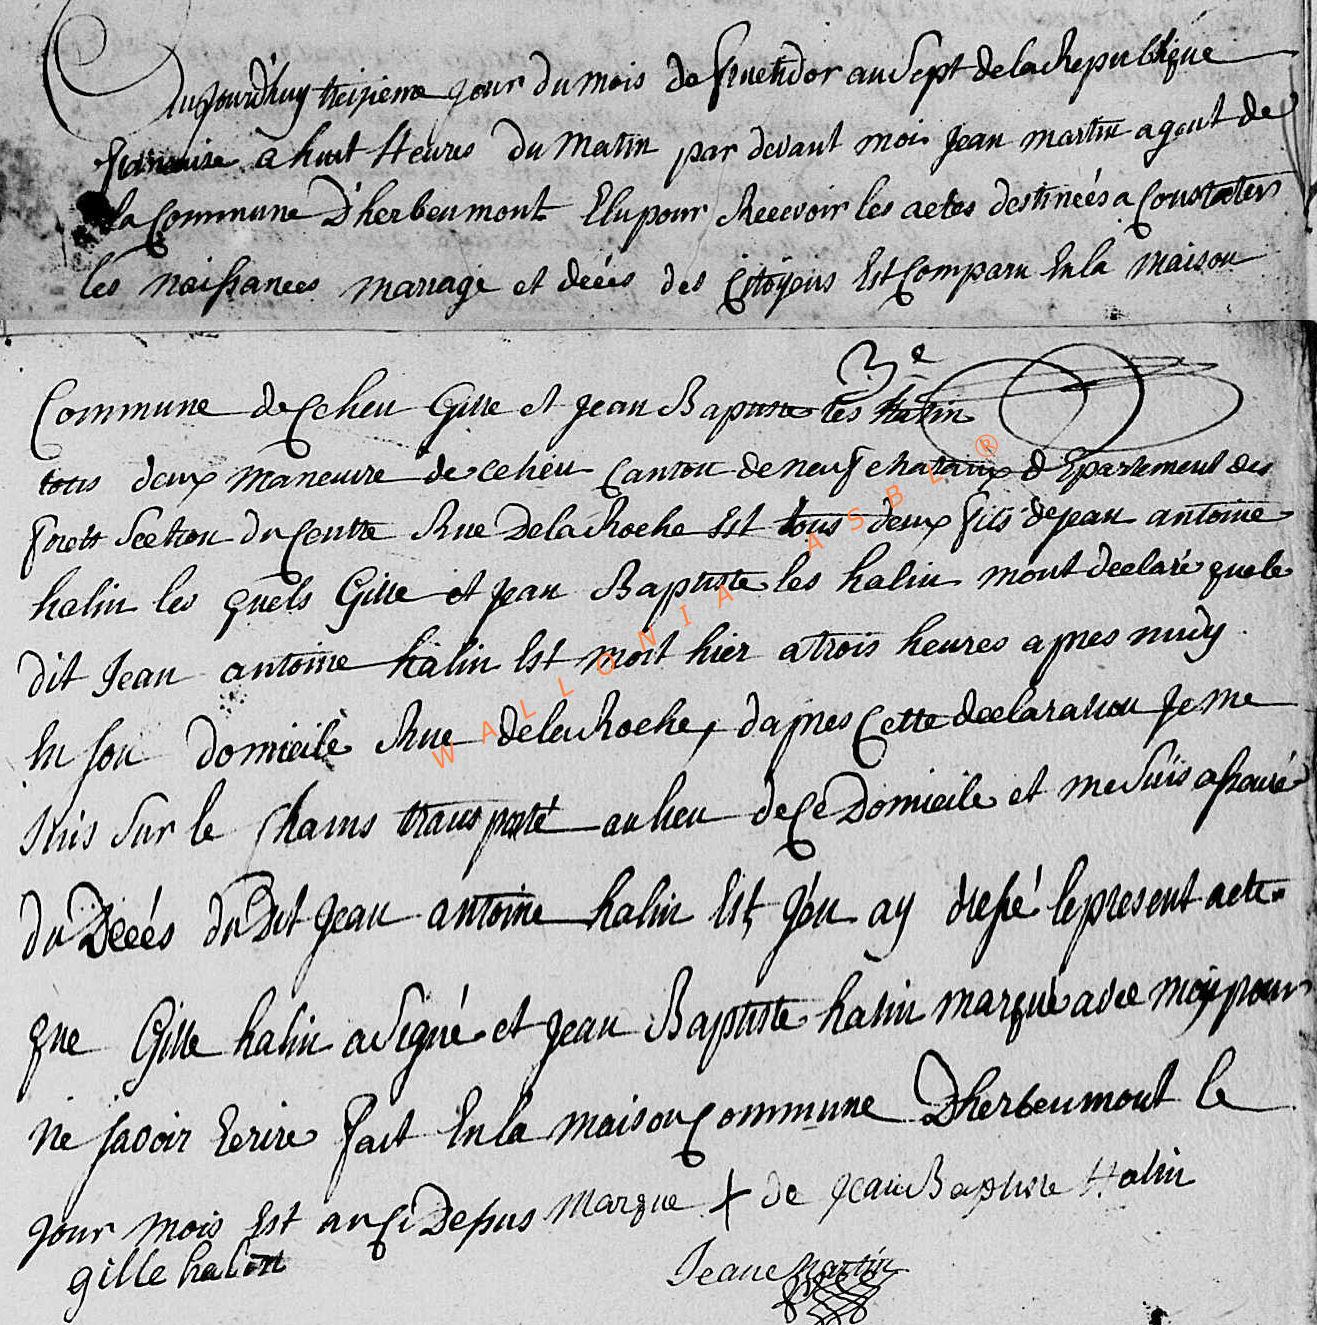 Aujourd'huy treizieme jour du mois de fructidor an sept de la Republique
francaise a huit Heures du Matin par devant moi Jean martin agent de
la Commune D'herbeumont Elu pour Recevoir les actes destinées a Constater
les naissances mariage et décés des Citoyens Est Comparu En la maison
3e
Commune de Ce lieu Gille et Jean Baptiste les halin
tous deux maneuvre de ce lieu Canton de neufchataux Département des
forets Section du Centre Rue De la Roche Est tous deux fils de jean antoine
halin les quels Gille et jean Baptiste les halin mont declaré que le
dit Jean antoine halin Est mort hier a trois heures apres midy
En son domicile Rue de la Roche, dapres Cette declaration Je me
suis sur le Chams transporté au lieu de Ce Domicile et me suis assuré
du Décés du Dit Jean antoine halin Est, J'en ay dressé le present acte
que Gille halin a signé et jean Baptiste halin marqué avec moy pour
ne savoir Ecrire fait En la maison Commune D'herbeumont le
jour mois Est an Ci Dessus marque + de Jean Baptiste Halin
gille halin
Jean Martin
WALLONIA ASBL ®